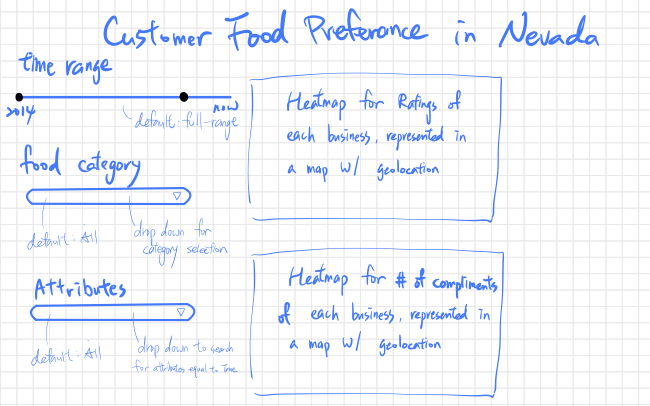 Customer Food Preferance in Nevada
time range
2014
now
default: full-range
food category
default: All
drop down for
category selection
Attributes
default: All
drop down to search
for attributes equal to True
Heatmap for Ratings of
each business, represented in
a map w/ geolocation
Heatmap for # of compliments
of each business, represented in
a map w/ geolocation